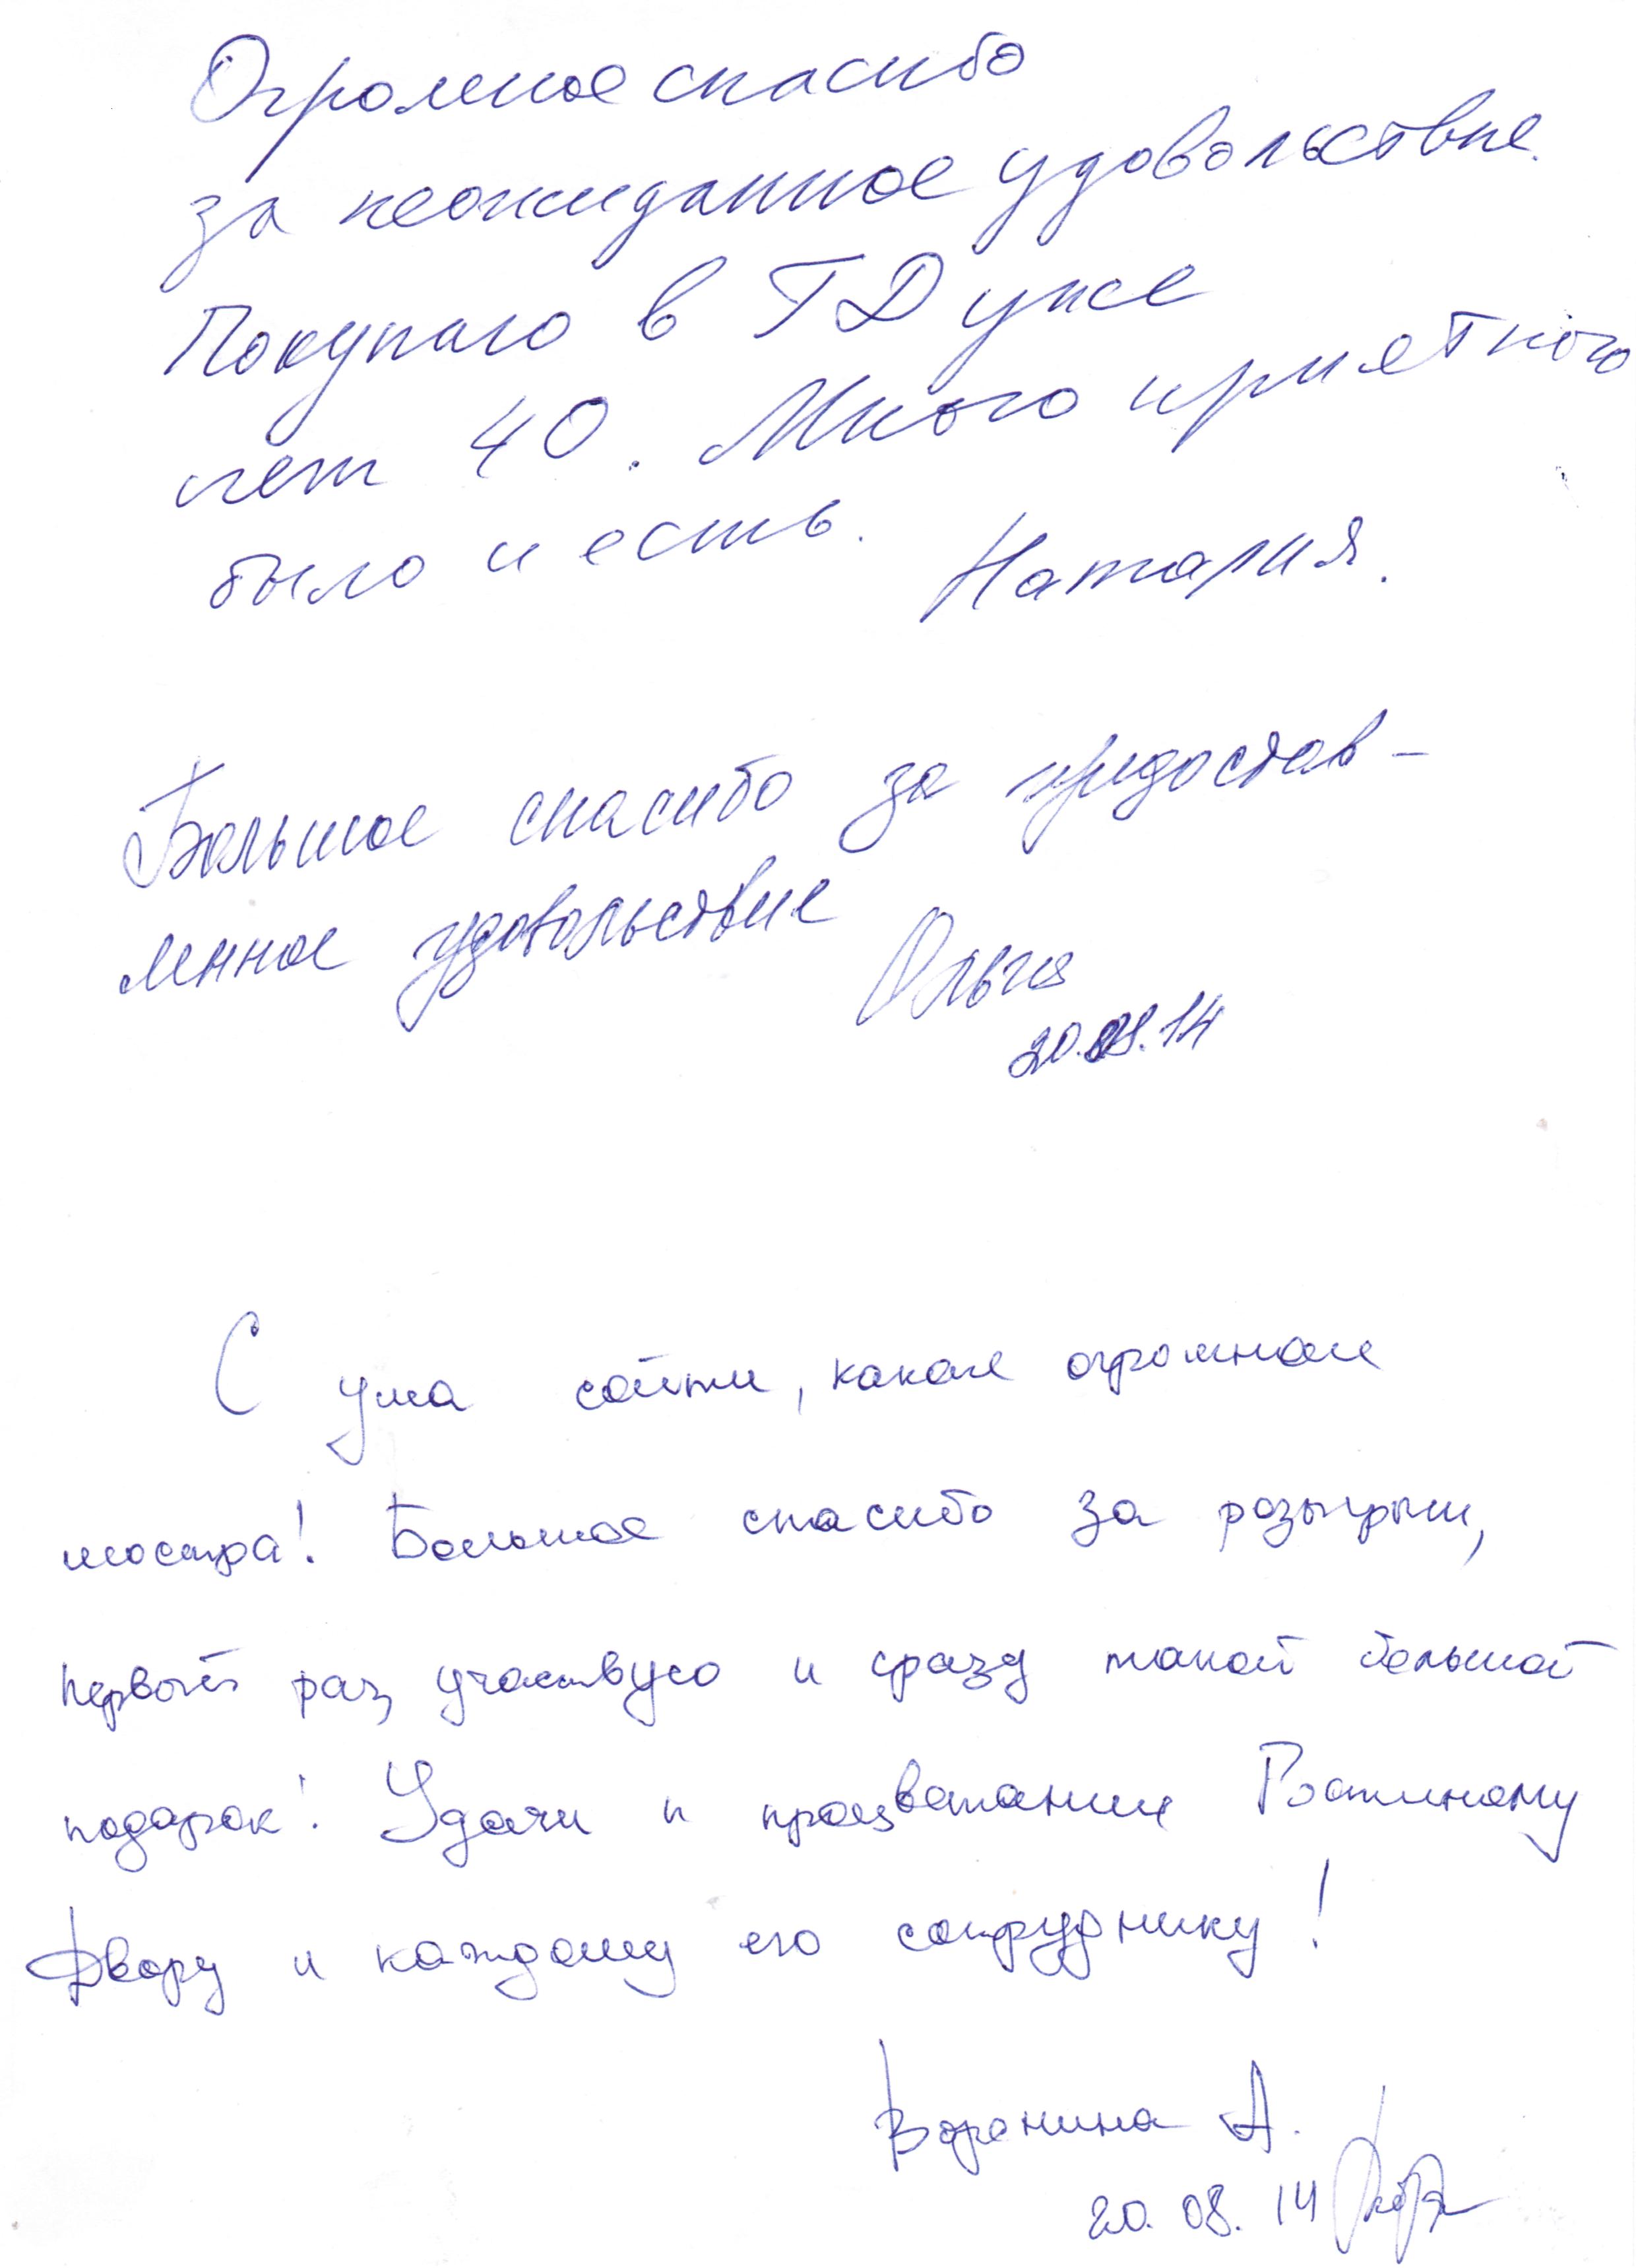 Огромное спасибо
за неожиданное удовольствие.
Покупаю в ГД уже
лет 40. Много приятного
было и есть. Наталия.
Большое спасибо за предостав-
ленное удовольствие
Ольга
20.08.14
С ума сойти, какая огромная
люстра! Большое спасибо за розыгрыш,
первый раз участвую и сразу такой большой
подарок! Удачи и процветания Гостиному
Двору и каждому его сотруднику!
Воронина А.
20.08.14